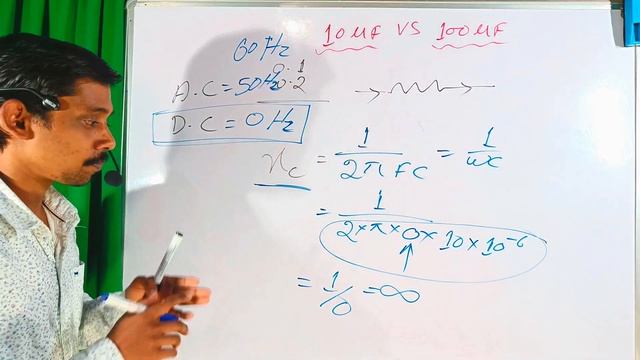 10 µF VS 100 µF
60 Hz
A.C = 50 Hz 0.1 0.2
D.C = 0 Hz
Xc = 1/2πFC = 1/ωc
= 1/2×π×0×10×10⁻⁶
= 1/0 = ∞